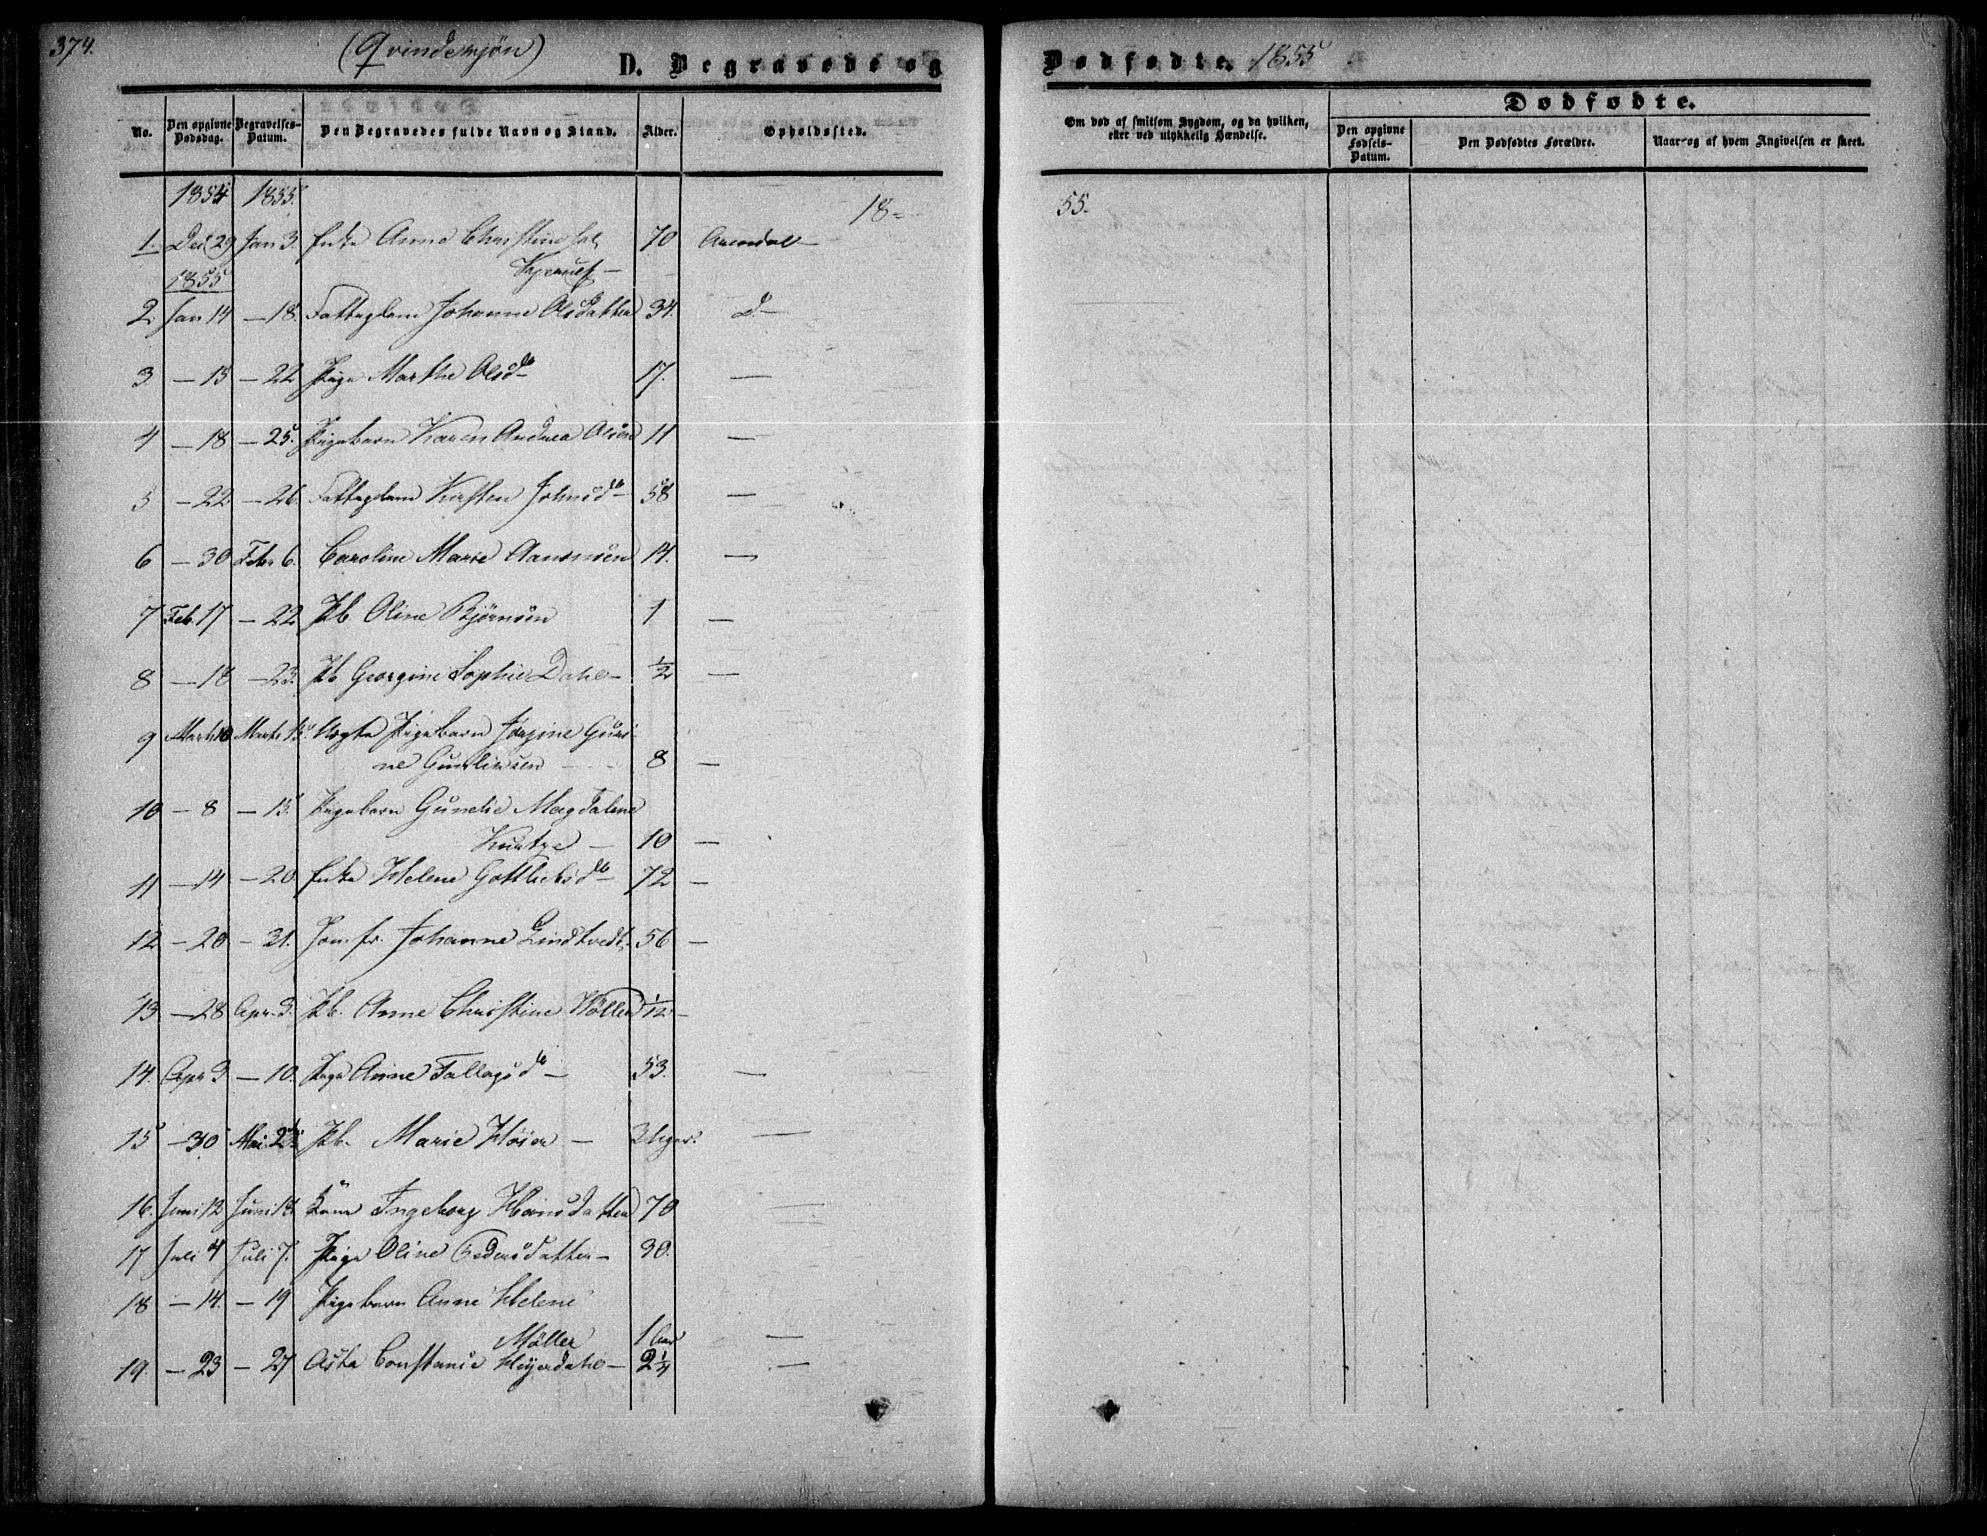 374.
(Qvindekjøn)
D. Begravede og Dødfødte. 1855
No. Den opgivne Dødsdag. Begravelses-Datum. Den Begravedes fulde Navn og Stand. Alder. Opholdssted. Om død af smitsom Sygdom, og da hvilken, eller ved ulykkelig Hændelse.
Dødfødte.
Den opgivne Fødsels-Datum. Den Dødfødtes Forældre. Naar og af hvem Angivelsen er skeet.
1854 1855. 18- 55.
1. Dec 29 Jan 3. Enke Anne Christine sal. 70 Arendal
1855
2. Jan 14 — 18. Fattiglem Johanne Olsdatter 34. D—
3 — 15 — 22 Pige Marthe Olsdr 17. —
4 — 18 — 25. Pigebarn Karen Andrea Olsen 11 —
5 — 22 — 26. Fattiglem Kirsten Johnsdr 58 —
6 — 30 Febr 6. Caroline Marie Aanonsen 14. —
7 Feb. 17 — 22 Pb Oline Bjørnsen 1 —
8 — 18 — 23. Pb Georgine Sophie Dahl 1/2 —
9 Marts 10 Marts 15. Pigebarn Jørgine Guri-
ne Gundersen 8 —
10 — 8 — 15. Pigebarn Gunelie Magdalene
Kuntze — 10 —
11 — 14 — 20 Enke Helene Gottliebsdr 72 —
12 — 20 — 31. Jomfr. Johanne Lindtvedt 56 —
13. — 28 Apr. 3. Pb. Anne Christine Møller 1/12 —
14. Apr 3 — 10. Pige Anne Tallagsdr — 53. —
15 — 30 Mai 2 Pb. Marie Høier — —
16. Juni 12 Juni 18 Kone Ingeborg Hansdatter 70
17 Juli 4 Juli 7. Pige Oline Pedersdatter — 30.
18 — 14. — 19 Pigebarn Anne Helene
Møller 1 Aar —
19. — 23 — 27 Asta Constanse Heyerdahl — 2 1/4 —